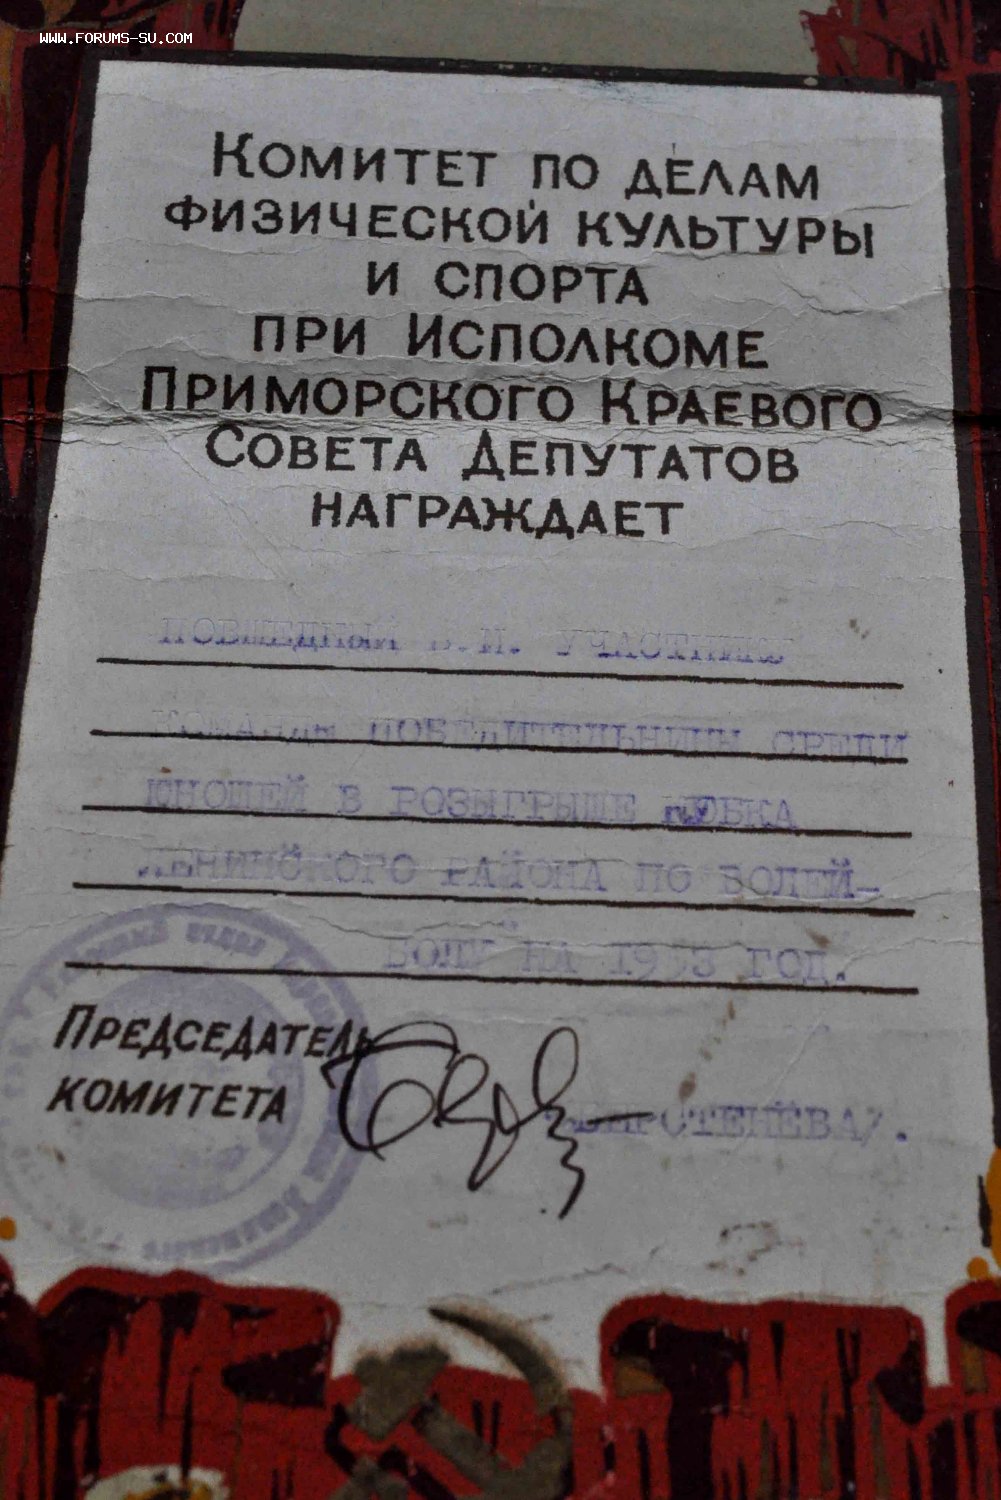 WWW.FORUMS-SU.COM
Комитет по делам
физической культуры
и спорта
при Исполкоме
Приморского Краевого
Совета Депутатов
награждает
УЧАСТНИКУ
КОМАНДЫ ПОБЕДИТЕЛЬНИЦЫ СРЕДИ
ЮНОШЕЙ В РОЗЫГРЫШЕ КУБКА
ЛЕНИНСКОГО РАЙОНА ПО ВОЛЕЙ-
БОЛУ НА ГОД.
Председатель
комитета